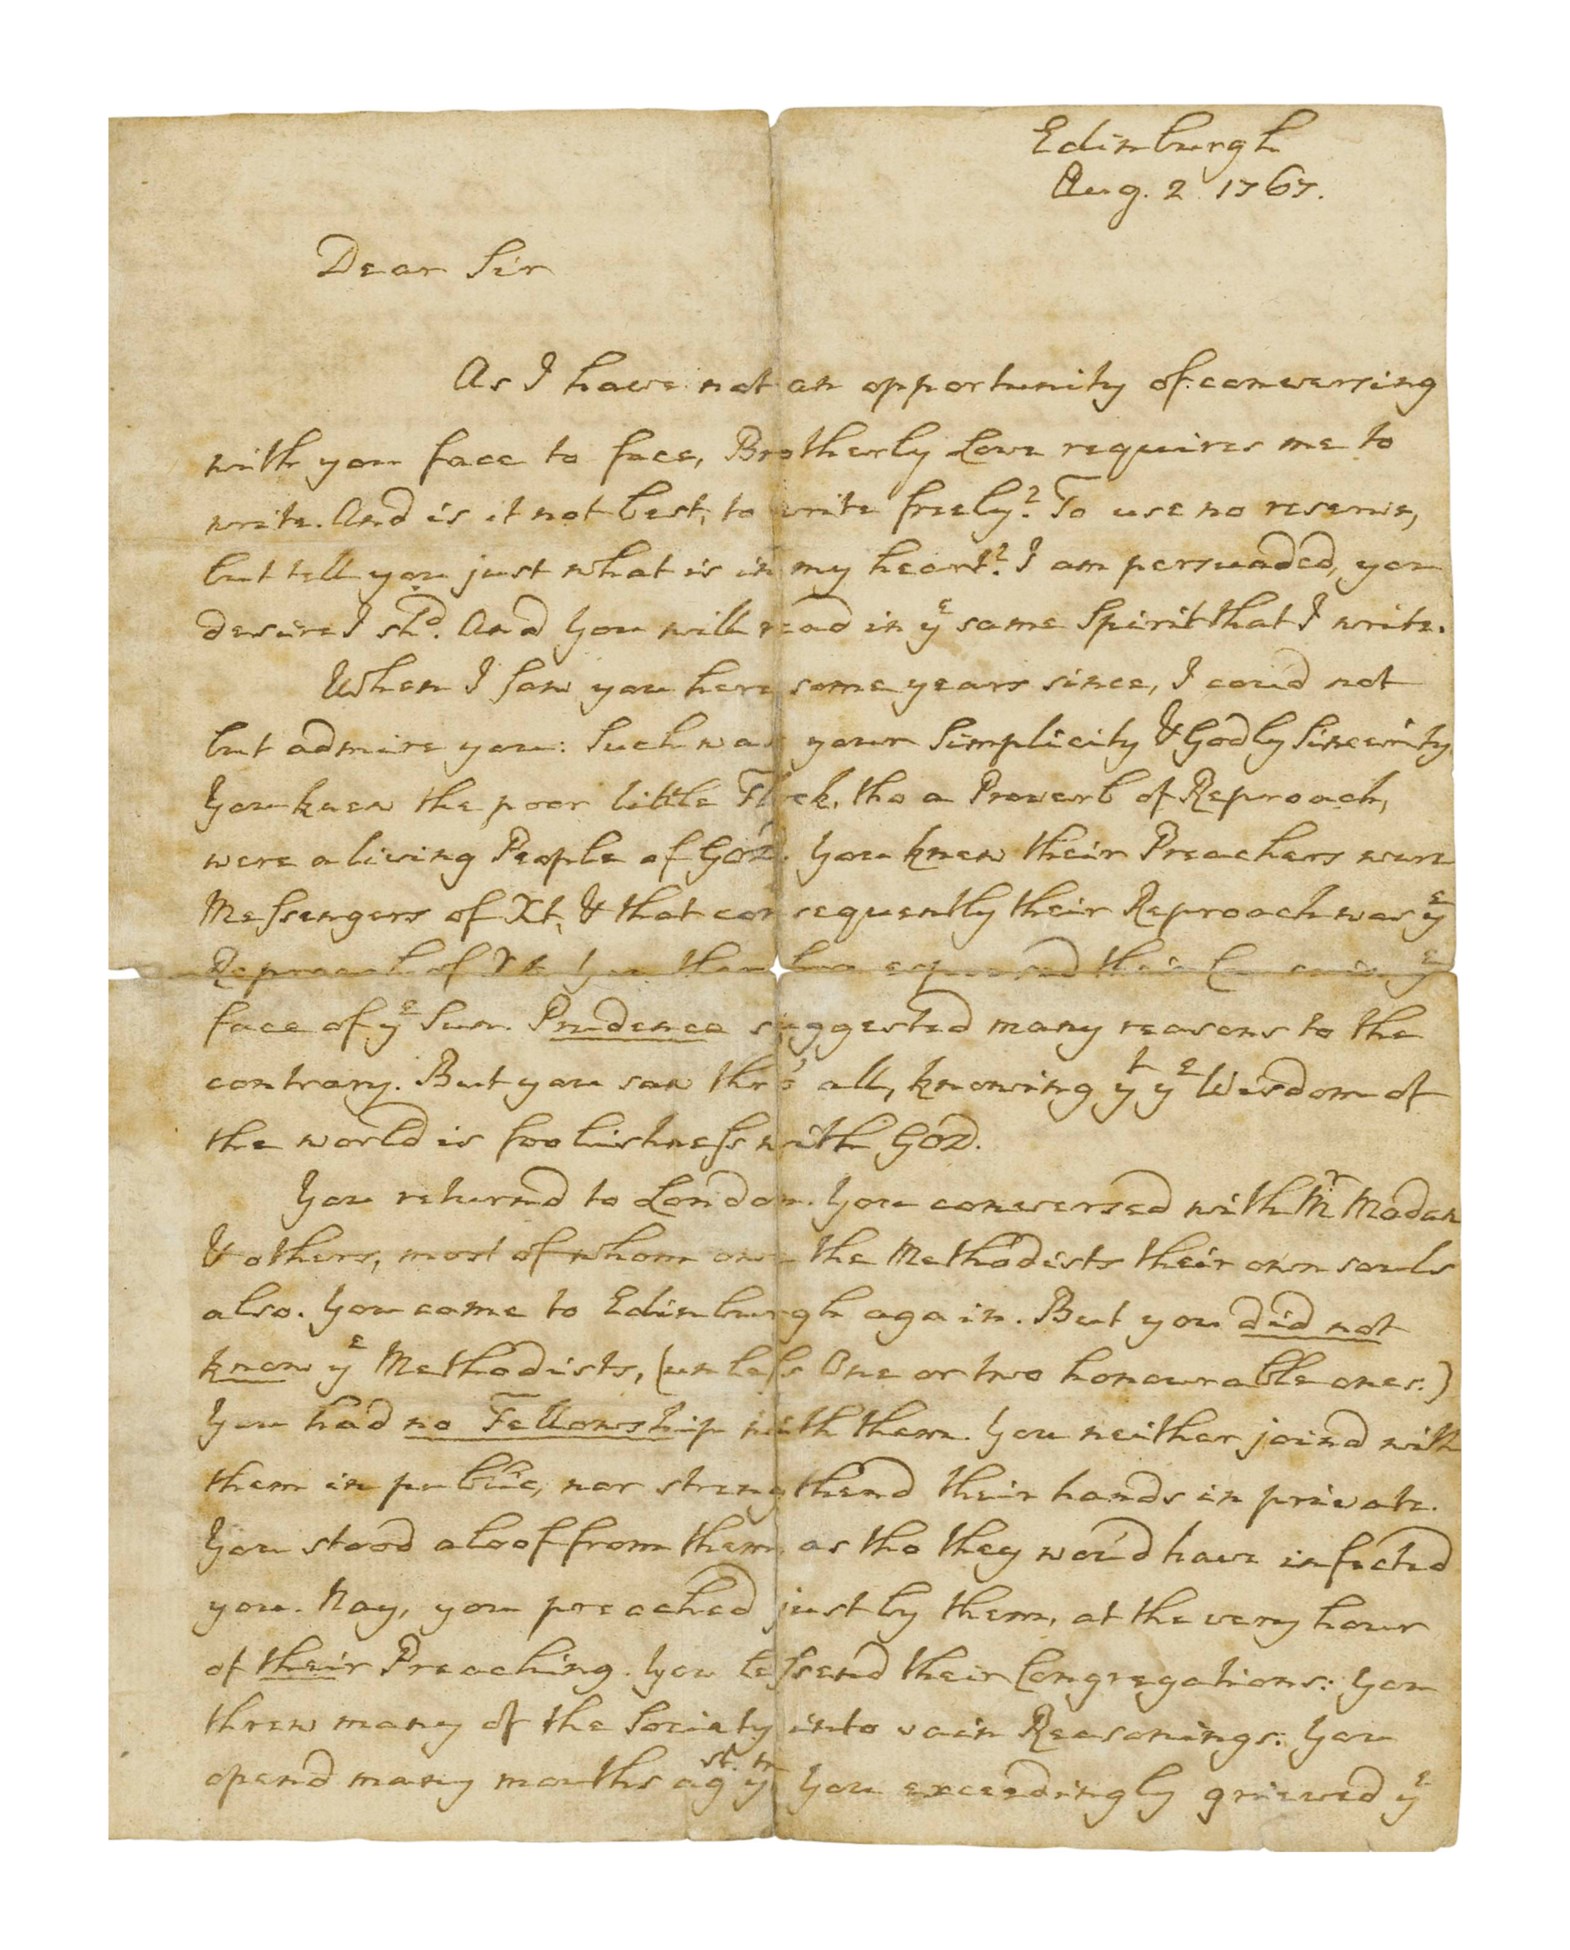 Edinburgh
Aug. 2 1767.
Dear Sir
As I have not an opportunity of conversing
with you face to face, Brotherly Love requires me to
write. And is it not best, to write freely? To use no reserve,
but tell you just what is in my heart? I am persuaded, you
desire I shd. And you will read in ye same Spirit that I write.
When I saw you here some years since, I cou'd not
but admire you: Such was your Simplicity & Godly Sincerity
You knew the poor little Flock, tho a Proverb of Reproach,
were a living People of GOD. You knew their Preachers were
Messengers of Xt, & that consequently their Reproach was ye
Reproach of Xt. You therefore espoused their Cause in ye
face of ye Sun. Prudence suggested many reasons to the
contrary. But you saw thro' all, knowing yt ye Wisdom of
the world is foolishness with GOD.
You returnd to London. You conversed with Mr Madan
& others, most of whom owe the Methodists their own souls
also. You came to Edinburgh again. But you did not
know ye Methodists, (unless One or two honourable ones.)
You had no Fellowship with them. You neither joind with
them in public, nor strengthend their hands in private.
You stood aloof from them, as tho they wou'd have infected
you. Nay, you preached just by them, at the very hour
of their Preaching. You lessend their Congregations: You
threw many of the Society into vain Reasonings: You
opend many mouths agst. ym You exceedingly grieved ye